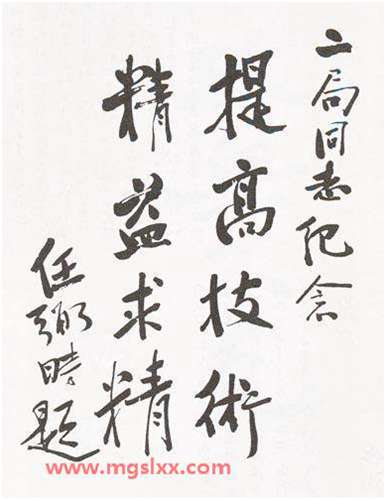 二局同志纪念
提高技術
精益求精
任弼時题
www.mgslxx.com